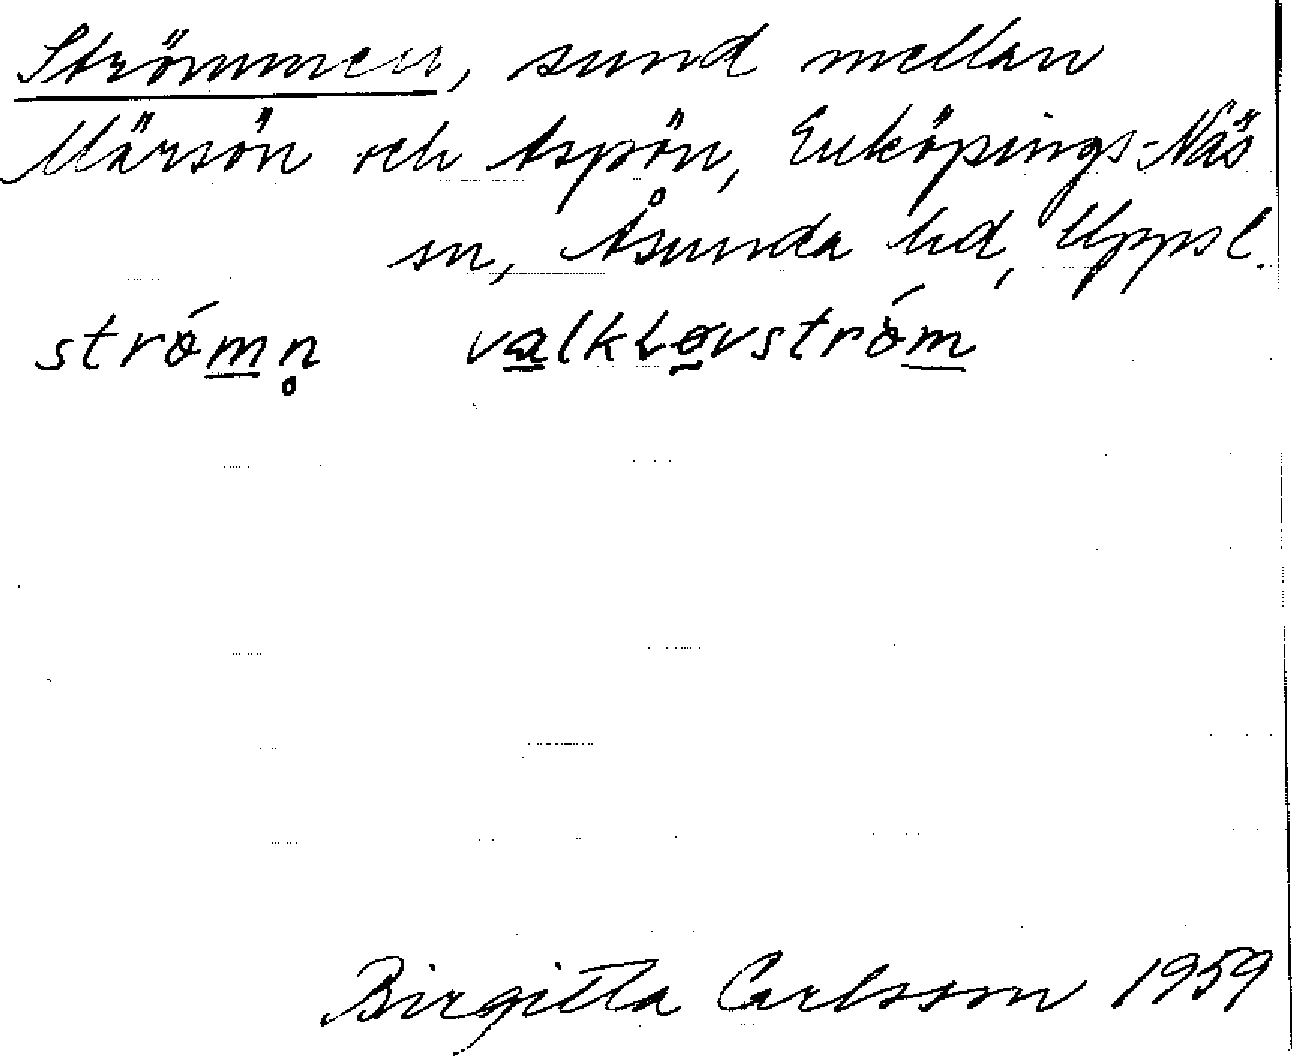 Strömmen, sund mellan
Märsön och Aspön, Enköpings-Näs
sn, Åsunda hd, Uppsl.
strömn valkløvström
Birgitta Carlsson 1959